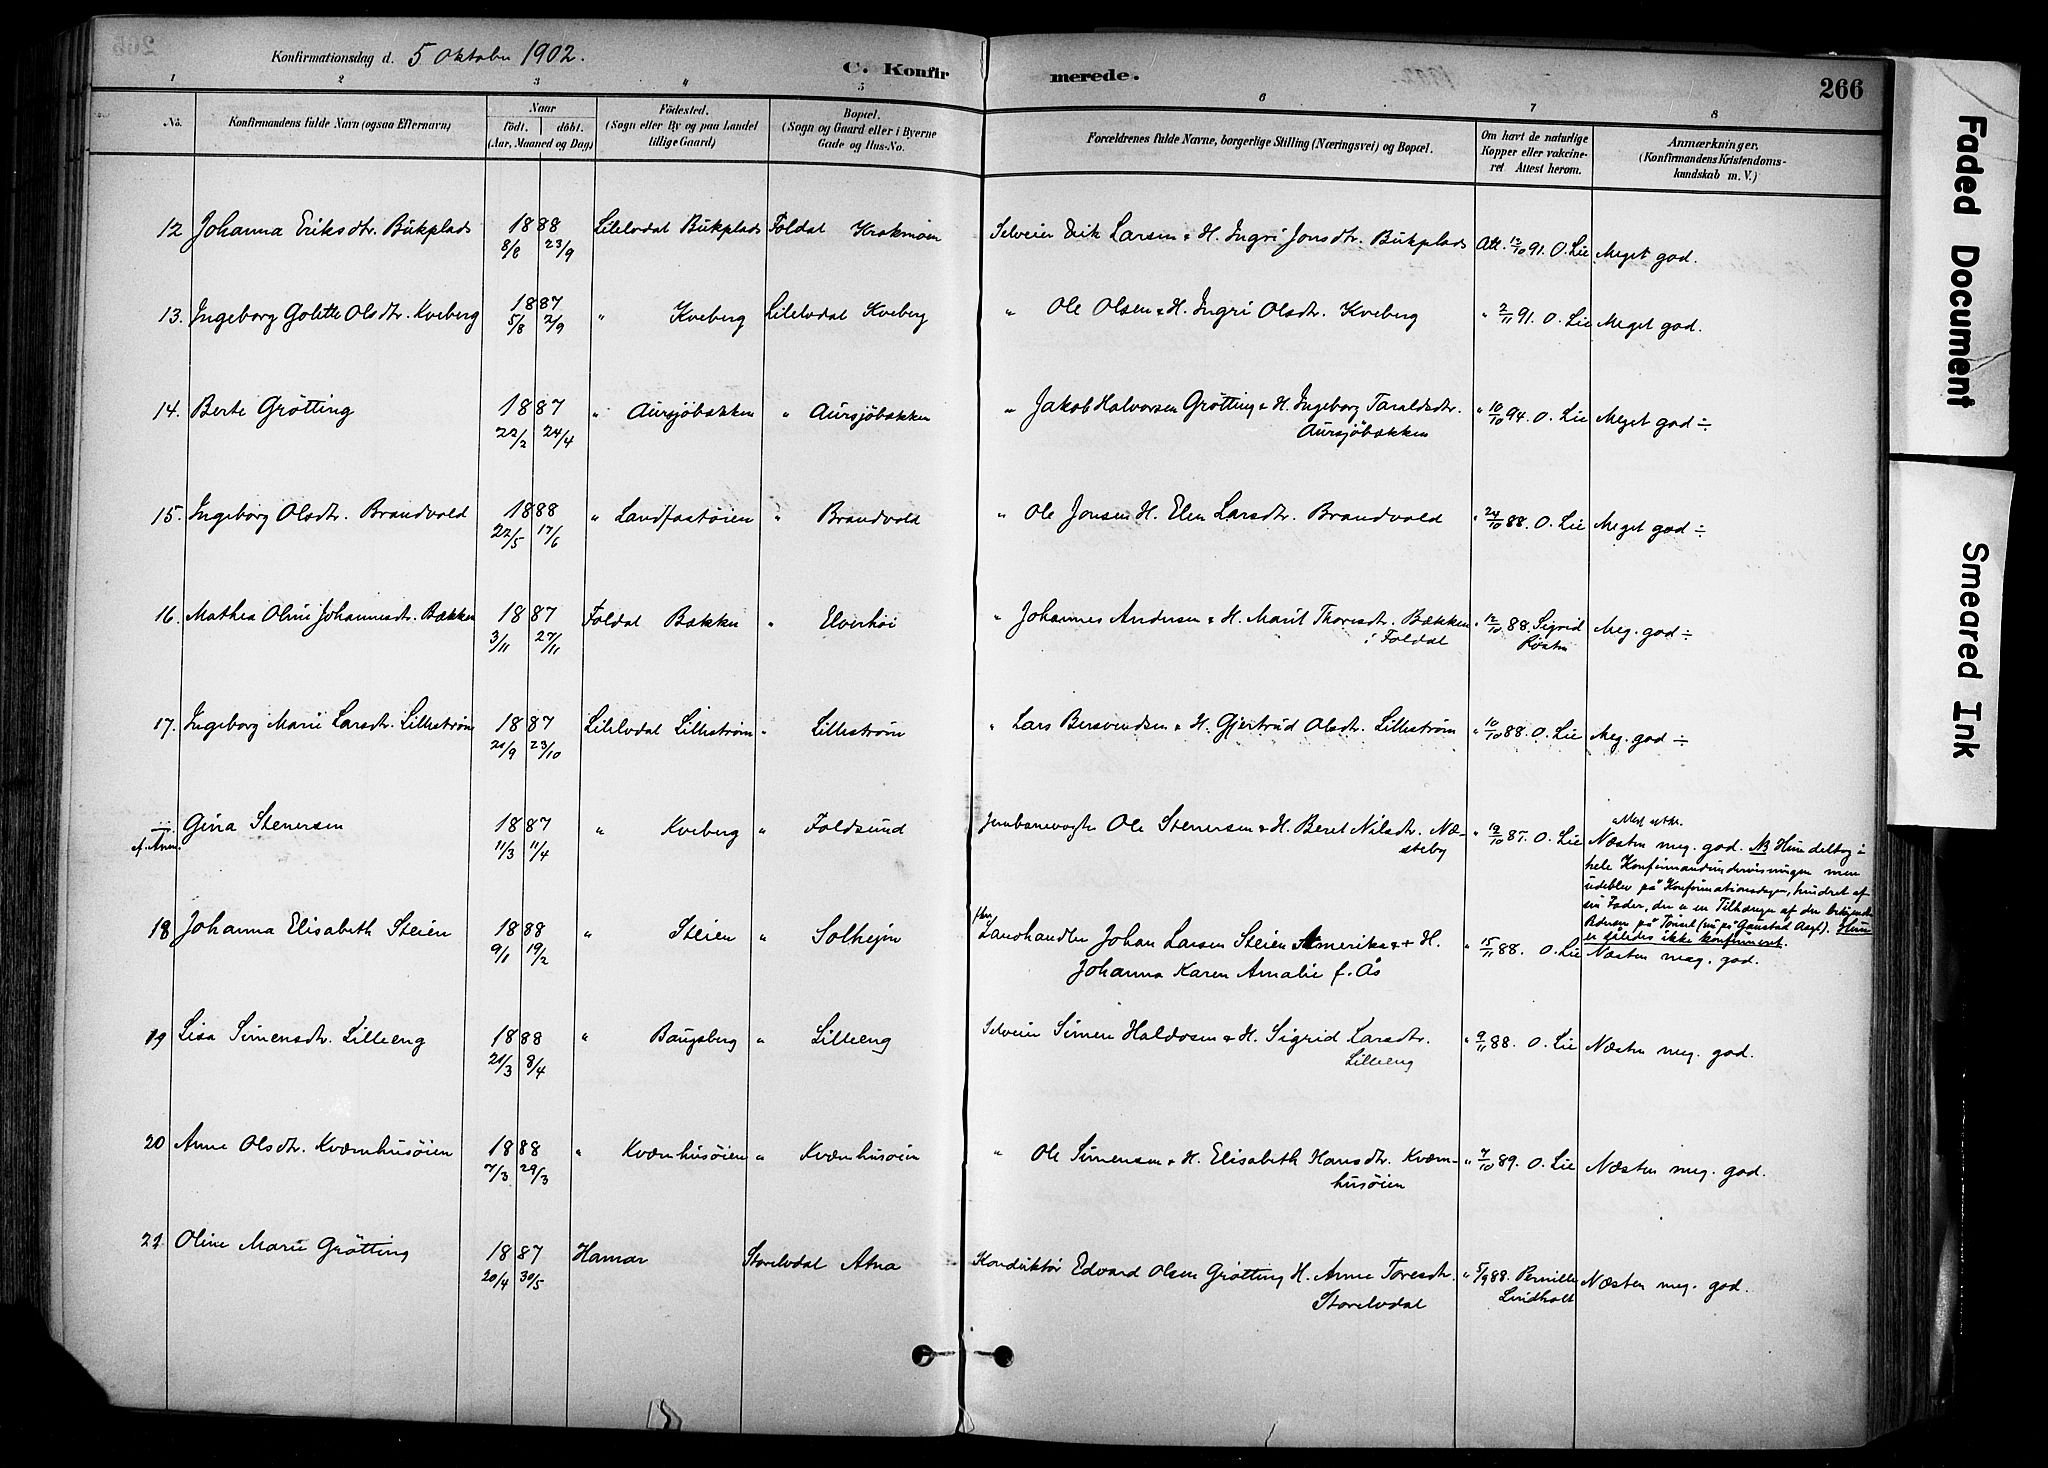 Konfirmationsdag d. 5 Oktober 1902.
C. Konfirmerede.
266
1 2 3 " 5 6 7 8
No.
Konfirmandens fulde Navn (ogsaa Efternavn)
Naar
födt. döbt.
(Aar, Maaned og Dag)
Födested.
(Sogn eller By og paa Landet
tillige Gaard)
Bopæl.
(Sogn og Gaard eller i Byerne
Gade og Hus-No.
Forældrenes fulde Navne, borgerlige Stilling (Næringsvei) og Bopæl.
Om havt de naturlige
Kopper eller vakcine-
ret Attest herom.
Anmærkninger.
(Konfirmandens Kristendoms-
kundskab m. V.)
12 Johanna Eriksdtr. Bukplads 1888 8/8 23/9 Lilelvdal Bukplads Foldal Krokmoen Selveier Erik Larsen & H. Ingri Jonsdtr. Bukplads Att. 12/10 91. O. Lie Meget god.
13. Ingeborg Golette Olsdtr. Kveberg 1887 5/8 2/9 " Kveberg Lilelvdal Kveberg " Ole Olsen & H. Ingri Olsdtr. Kveberg " 2/11 91. O. Lie Meget god.
14. Berte Grötting 1887 22/2 24/4 " Aursjöbækken " Aursjöbækken " Jakob Halvorsen Grötting & H. Ingeborg Taraldsdtr. " 10/10 94. O. Lie Meget god ÷
Aursjöbækken
15. Ingeborg Olsdtr. Brandvold 1888 22/5 17/6 " Landfastöien " Brandvold " Ole Jonsen H. Elen Larsdtr. Brandvold " 24/10 88. O. Lie Meget god ÷
16. Mathea Oline Johannesdtr. Bækken 1887 3/11 27/11 Foldal Bækken " Elverhöi " Johannes Andersen & H. Marit Thoresdtr. Bækken " 12/10 88. Sigrid Meg. god ÷
i Foldal Røsten
17. Ingeborg Marie Larsdtr. Lilleström 1887 21/9 23/10 Lilelvdal Lilleström " Lilleström " Lars Bersvendsen & H. Gjertrud Olsdtr. Lilleström " 10/10 88. O. Lie Meg. god ÷
÷ Gina Stenersen 1887 11/3 11/4 " Kveberg " Foldsund Jernbanevogter Ole Stenersen & H. Beret Nilsdtr. Næ- " 12/10 87. O. Lie
cf. Anm. steby
Næsten meg. god. NB Hun deltog i
hele Konfirmandundervisningen men
udeblev på Konfirmationsdagen, hindret af
sin Fader, der er en Tilhænger af den bekjendte
på Tönset (nu på Gaustad Asyl). Hun
er således ikke konfirmeret.
18 Johanna Elisabeth Steien 1888 9/1 19/2 " Steien " Solhejm Landhandler Johan Larsen Steien Amerika & H. " 15/11 88. O. Lie Næsten meg. god.
Johanna Karen Amalie f. Ås
19 Lisa Simensdtr. Lilleeng 1888 21/3 8/4 " Baugsberg " Lilleeng Selveier Simen Haldosen & H. Sigrid Larsdtr. " 9/11 88. O. Lie Næsten meg. god.
Lilleeng
20 Anne Olsdtr. Kværnhusöien 1888 7/3 29/3 " Kværnhusöien " Kværnhusöien " Ole Simensen & H. Elisabeth Hansdtr. Kværn- " 7/10 89. O. Lie Næsten meg. god.
husöien
21 Oline Marie Grötting 1887 20/4 30/5 Hamar Storelvdal Atna Konduktör Edvard Olsen Grötting H. Anne Toresdtr. " 5/9 88. Pernille Næsten meg. god.
Storelvdal Lindholt
Faded Document
Smeared Ink